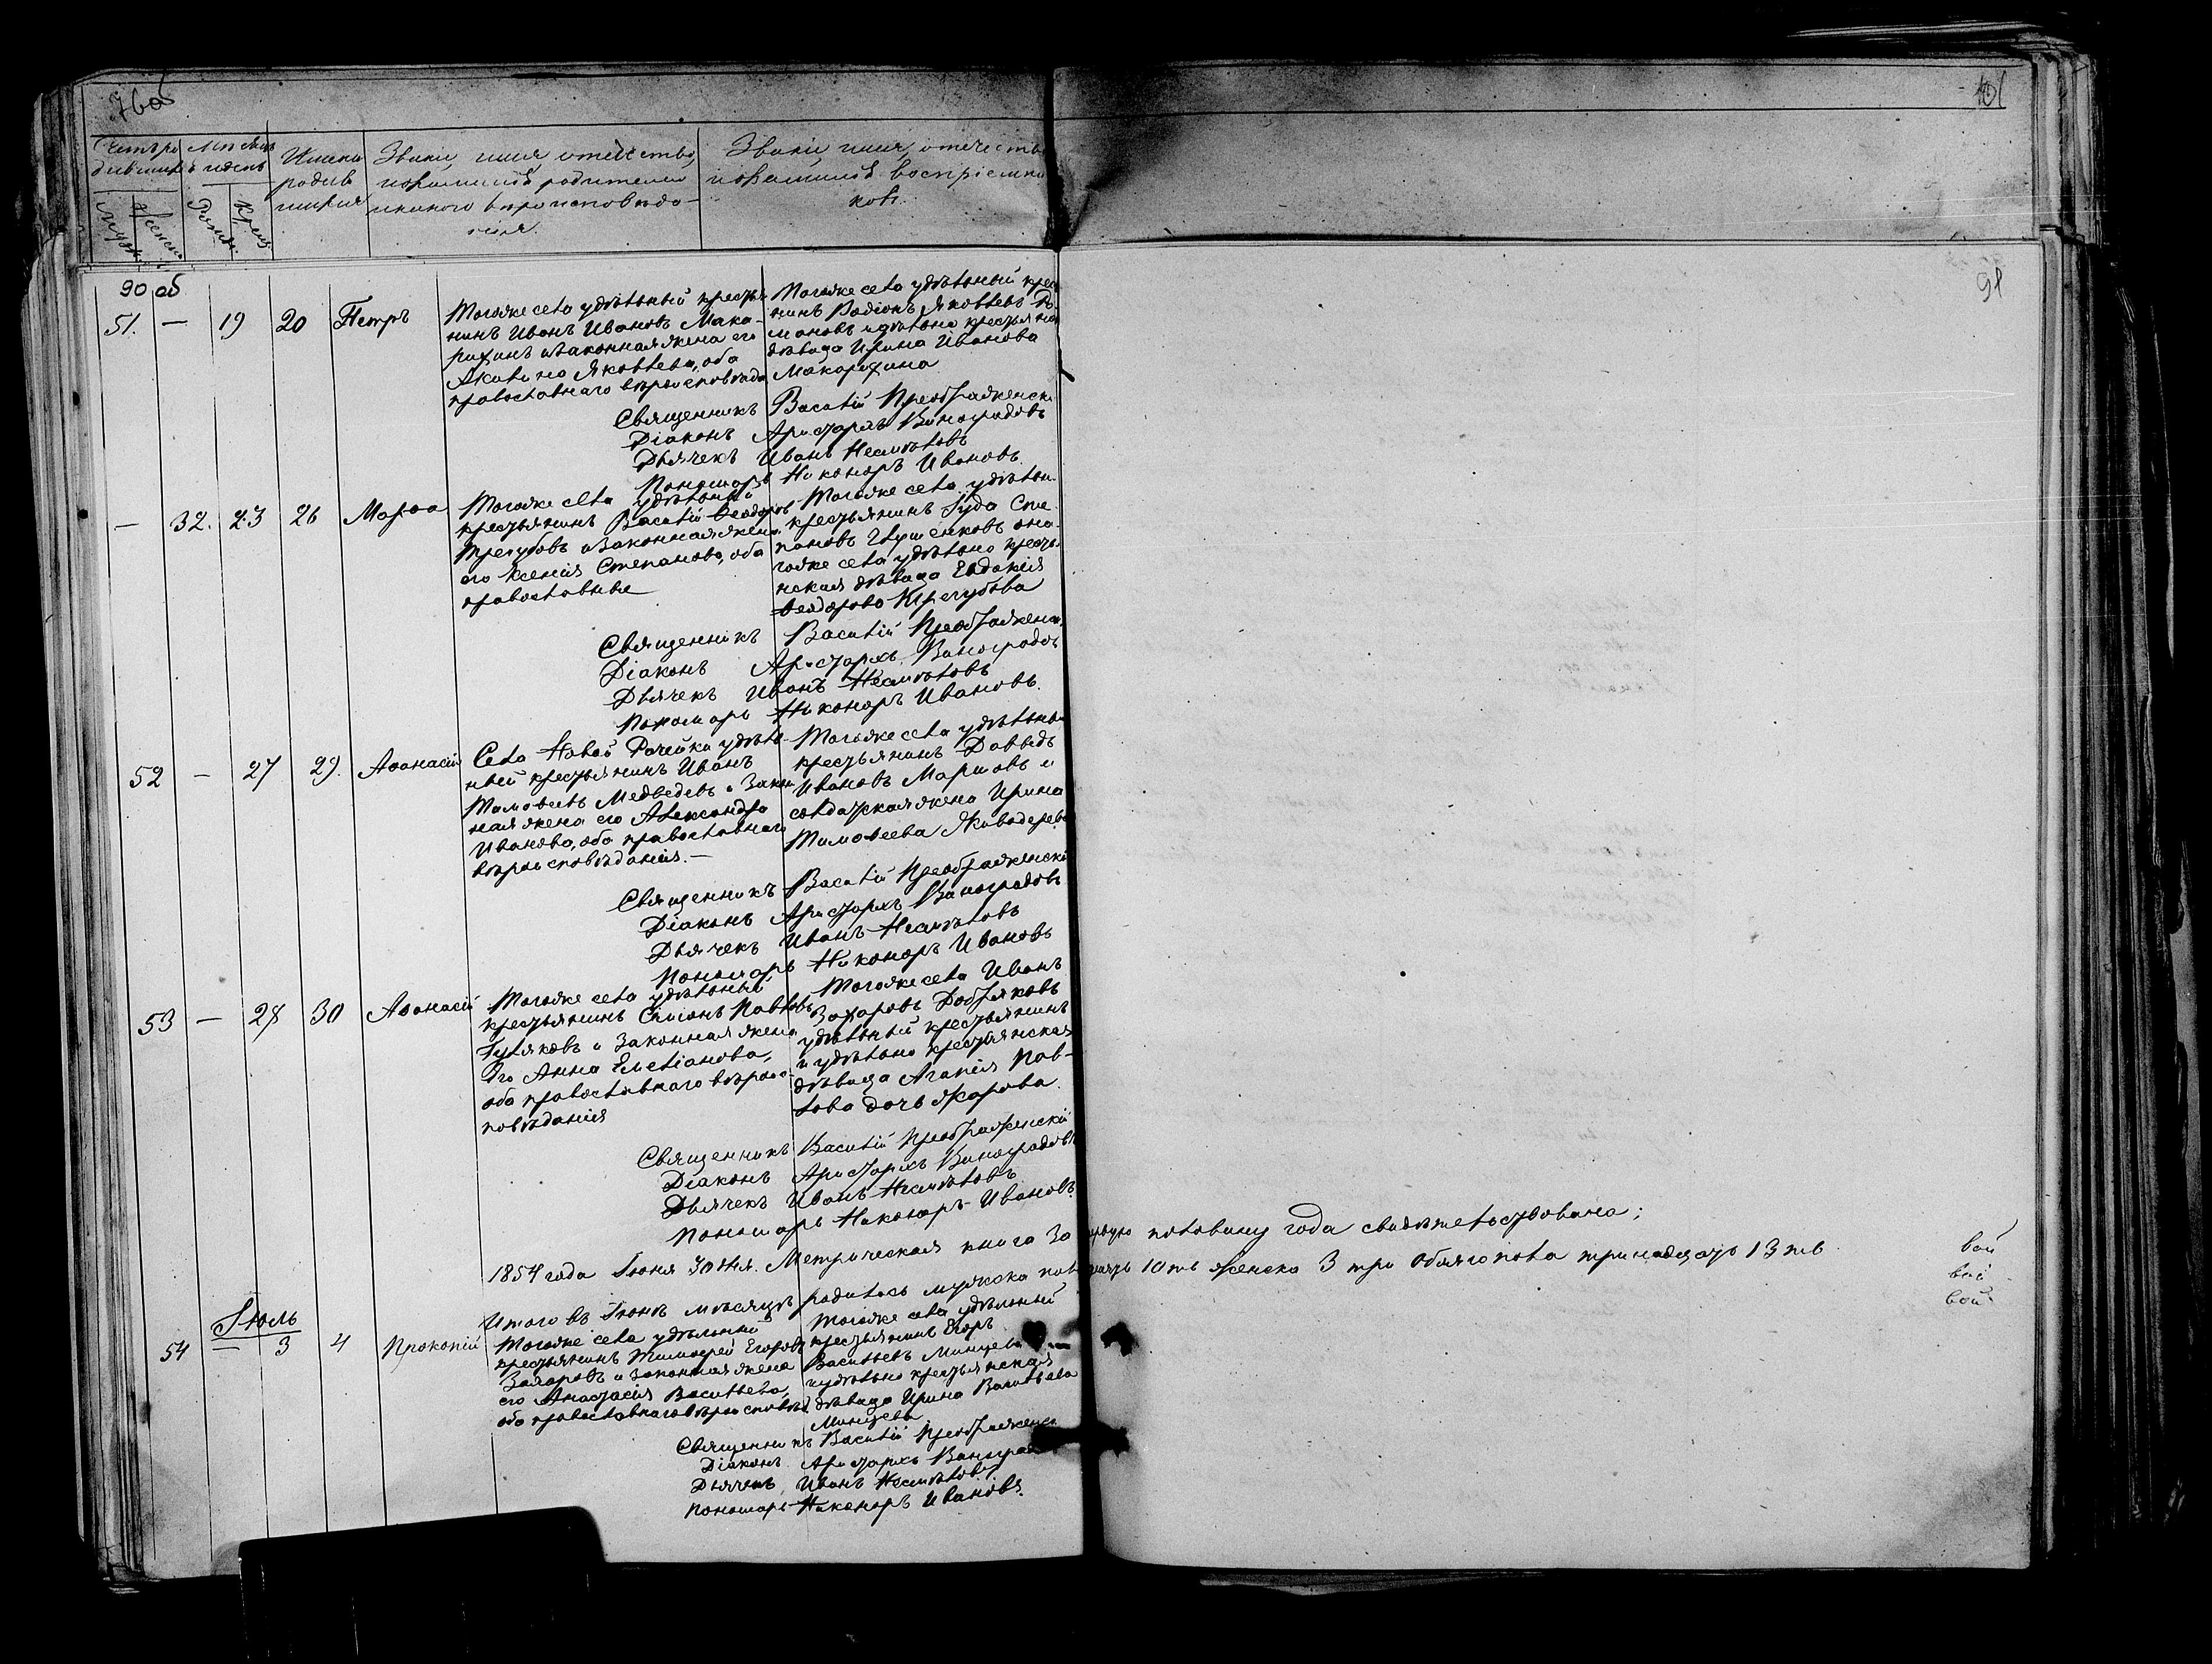 76 об
101
Счетъ ро
дившихъ
Мѣсяцъ
и день
Имена
родив
шихся
Званіе, имя отечество,
и фамилія родителей
и какого вѣроисповѣда-
нія.
Званіе, имя, отечество
и фамилія воспріемни
ковъ.
Муж.
Женск.
Рожд.
Крещ.
90 об
91
51. — 19 20 Петръ
Тогоже села удѣльный крестья
нинъ Иванъ Ивановъ Мака-
рихинъ и законная жена его
Акилина Яковлева, оба
православнаго вѣроисповѣда
Тогоже села удѣльный крес
нинъ Родіонъ Яковлевъ Ро-
мановъ и удѣльна крестьянск
дѣвица Ирина Иванова
Макарихина
Священникъ Василій Преображенск
Діаконъ Аристархъ Виноградовъ
Дьячекъ Иванъ Несмѣловъ
Пономарь Никоноръ Ивановъ
— 32. 23 26 Марѳа
Тогоже села удѣльный
крестьянинъ Василій Ѳеодоровъ
Трегубовъ и законная жена
его Ксенія Степанова, оба
православные
Тогоже села удѣльн.
крестьянинъ Іуда Сте-
пановъ Глущенковъ она-
гоже села удѣльна кресть-
нская дѣвица Евдокія
Ѳеодорова Трегубова
Священникъ Василій Преображенск.
Діаконъ Аристархъ Виноградовъ
Дьячекъ Иванъ Несмѣловъ
Пономарь Никоноръ Ивановъ.
52 — 27 29. Аѳанасій
Села Новой Рачейки удѣль-
ный крестьянинъ Иванъ
Тимоѳеевъ Медведевъ и Закон
ная жена его Александра
Иванова, оба православнаго
вѣроисповѣданія. —
Тогоже села удѣльны
крестьянинъ Давыдъ
Ивановъ Маршовъ и
солдатская жена Ирина
Тимоѳеева Живодерова
Священникъ Василій Преображенскій
Діаконъ Аристархъ Виноградовъ
Дьячекъ Иванъ Несмѣловъ
Пономарь Никоноръ Ивановъ
53 — 28 30 Аѳанасій
Тогоже села удѣльный
крестьянинъ Симіонъ Павловъ
Гуляковъ и Законная жена
Его Анна Емеліанова,
оба православнаго вѣроис-
повѣданія
Тогоже села Иванъ
Захаровъ Добряковъ
удѣльный крестьянинъ
и удѣльна крестьянская
дѣвица Агапія Пав-
лова дочь Жарова
Священникъ Василій Преображенскій
Діаконъ Аристархъ Виноградовъ
Дьячекъ Иванъ Несмѣловъ
Пономарь Никоноръ Ивановъ
1854 года Іюня 30 дня. Метрическая книга за первую половину года свидѣтельствована;
Итого въ Іюнѣ мѣсяцѣ родилось мужска пола десять 10 ть женска 3 три обоего пола тринадцать 13 ть
вой
вой
вой
Іюль
54 — 3 4 Прокопій
Тогоже села удѣльный
крестьянинъ Тимоѳей Егоровъ
Захаровъ и законная жена
его Анастасія Васильева,
оба православнаго вѣроисповѣд
Тогоже села удѣльный
крестьянинъ Егоръ
Васильевъ Минцевъ
и удѣльна крестьянская
дѣвица Ирина Васильева
Минцева
Священникъ Василій Преображенск
Діаконъ Аристархъ Виноградо
Дьячекъ Иванъ Несмѣловъ
Пономарь Никоноръ Ивановъ.